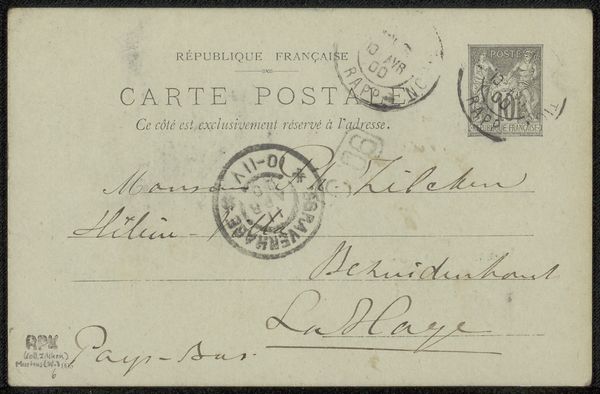 RÉPUBLIQUE FRANÇAISE
CARTE POSTALE
Ce côté est exclusivement réservé à l'adresse.
POSTES
10
RÉPUBLIQUE FRANÇAISE
13 AVR 00
RAPP
'SGRAVENHAGE
10-11V
90
Monsieur Ph. Zilcken
Hélène
Bezuidenhout
La Haye
Pays-Bas
RPK
(coll. Zilcken)
6